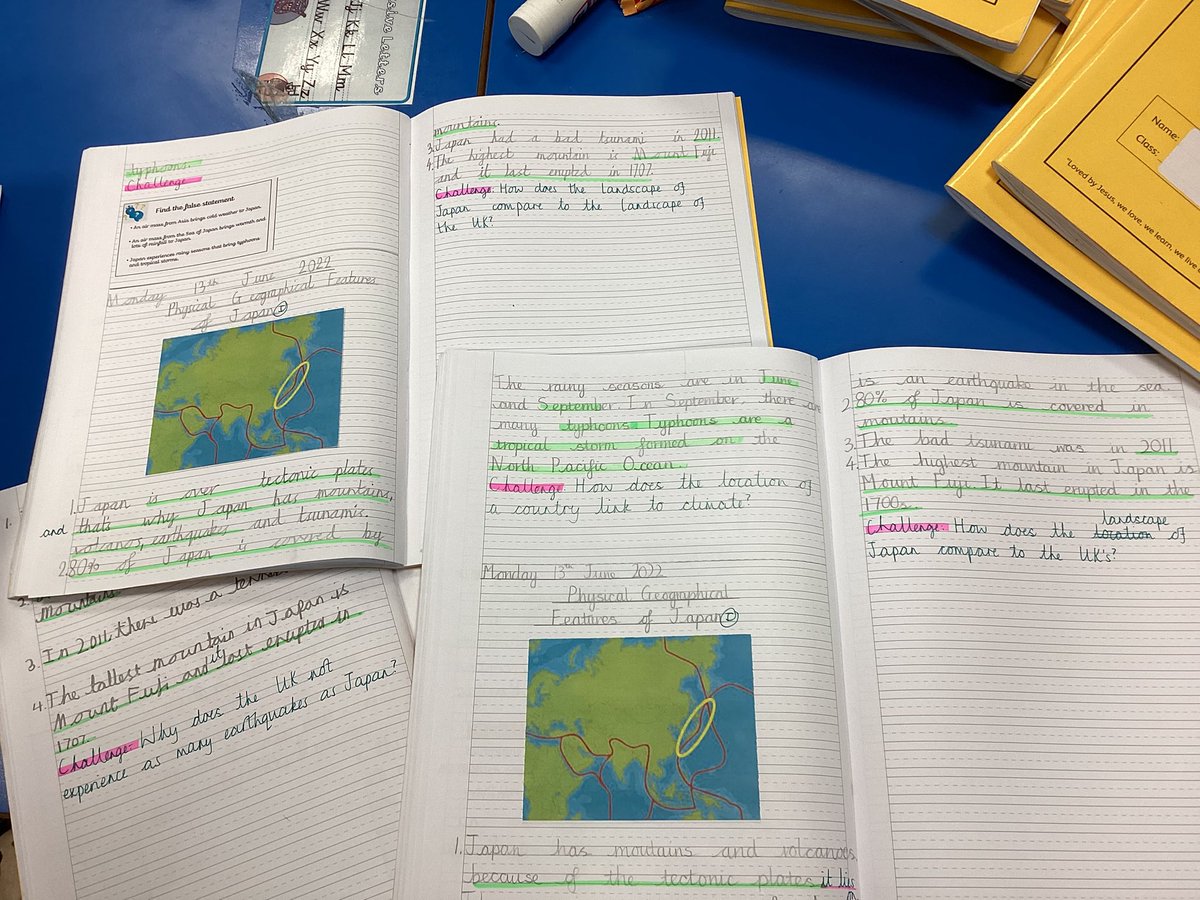 sive Letters
Jj Kk Ll Mm
Ww Xx Yy Zz
Name:
Class:
"Loved by Jesus, we love, we learn, we live
typhoons.
Challenge
Find the false statement
• An air mass from Asia brings cold weather to Japan.
• An air mass from the Sea of Japan brings warmth and
lots of rainfall to Japan.
• Japan experiences rainy seasons that bring typhoons
and tropical storms.
Monday 13th June 2022
Physical Geographical Features
of Japan I
1. Japan is over tectonic plates
and that's why Japan has mountains,
volcanos, earthquakes and tsunamis.
2. 80% of Japan is covered by
mountains.
3. Japan had a bad tsunami in 2011.
4. The highest mountain is Mount Fuji
and it last erupted in 1707.
Challenge: How does the landscape of
Japan compare to the landscape of
the UK?
1.
2.
mountains
3. In 2011 there was a
4. The tallest mountain in Japan is
Mount Fuji and it last erupted in
1707.
Challenge: Why does the UK not
experience as many earthquakes as Japan?
The rainy seasons are in June
and September. In September, there are
many typhoons. Typhoons are a
tropical storm formed on the
North Pacific Ocean.
Challenge: How does the location of
a country link to climate?
Monday 13th June 2022
Physical Geographical
Features of Japan I
1. Japan has moutains and volcanoes
because of the tectonic plates it lis
is an earthquake in the sea.
2. 80% of Japan is covered in
moutains.
3. The bad tsunami was in 2011
4. The highest mountain in Japan is
Mount Fuji. It last erupted in the
1700s.
landscape
Challenge: How does the location of
Japan compare to the UK's?